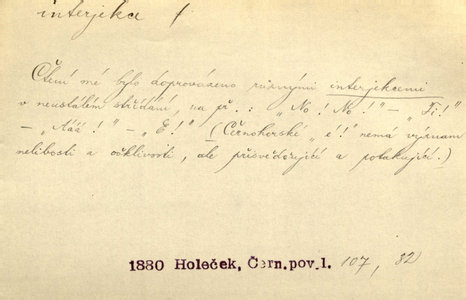 interjekce f
Čtení mé bylo doprovázeno různými interjekcemi
v neustálém střídání, na př.: „No! No!" – „Ti!"
– „Ááá!" – „E!" (Černohorské „e!" nemá význam
nelibosti a ošklivosti, ale přisvědčující a potakující.)
1880 Holeček, Čern.pov.1. 107, 32